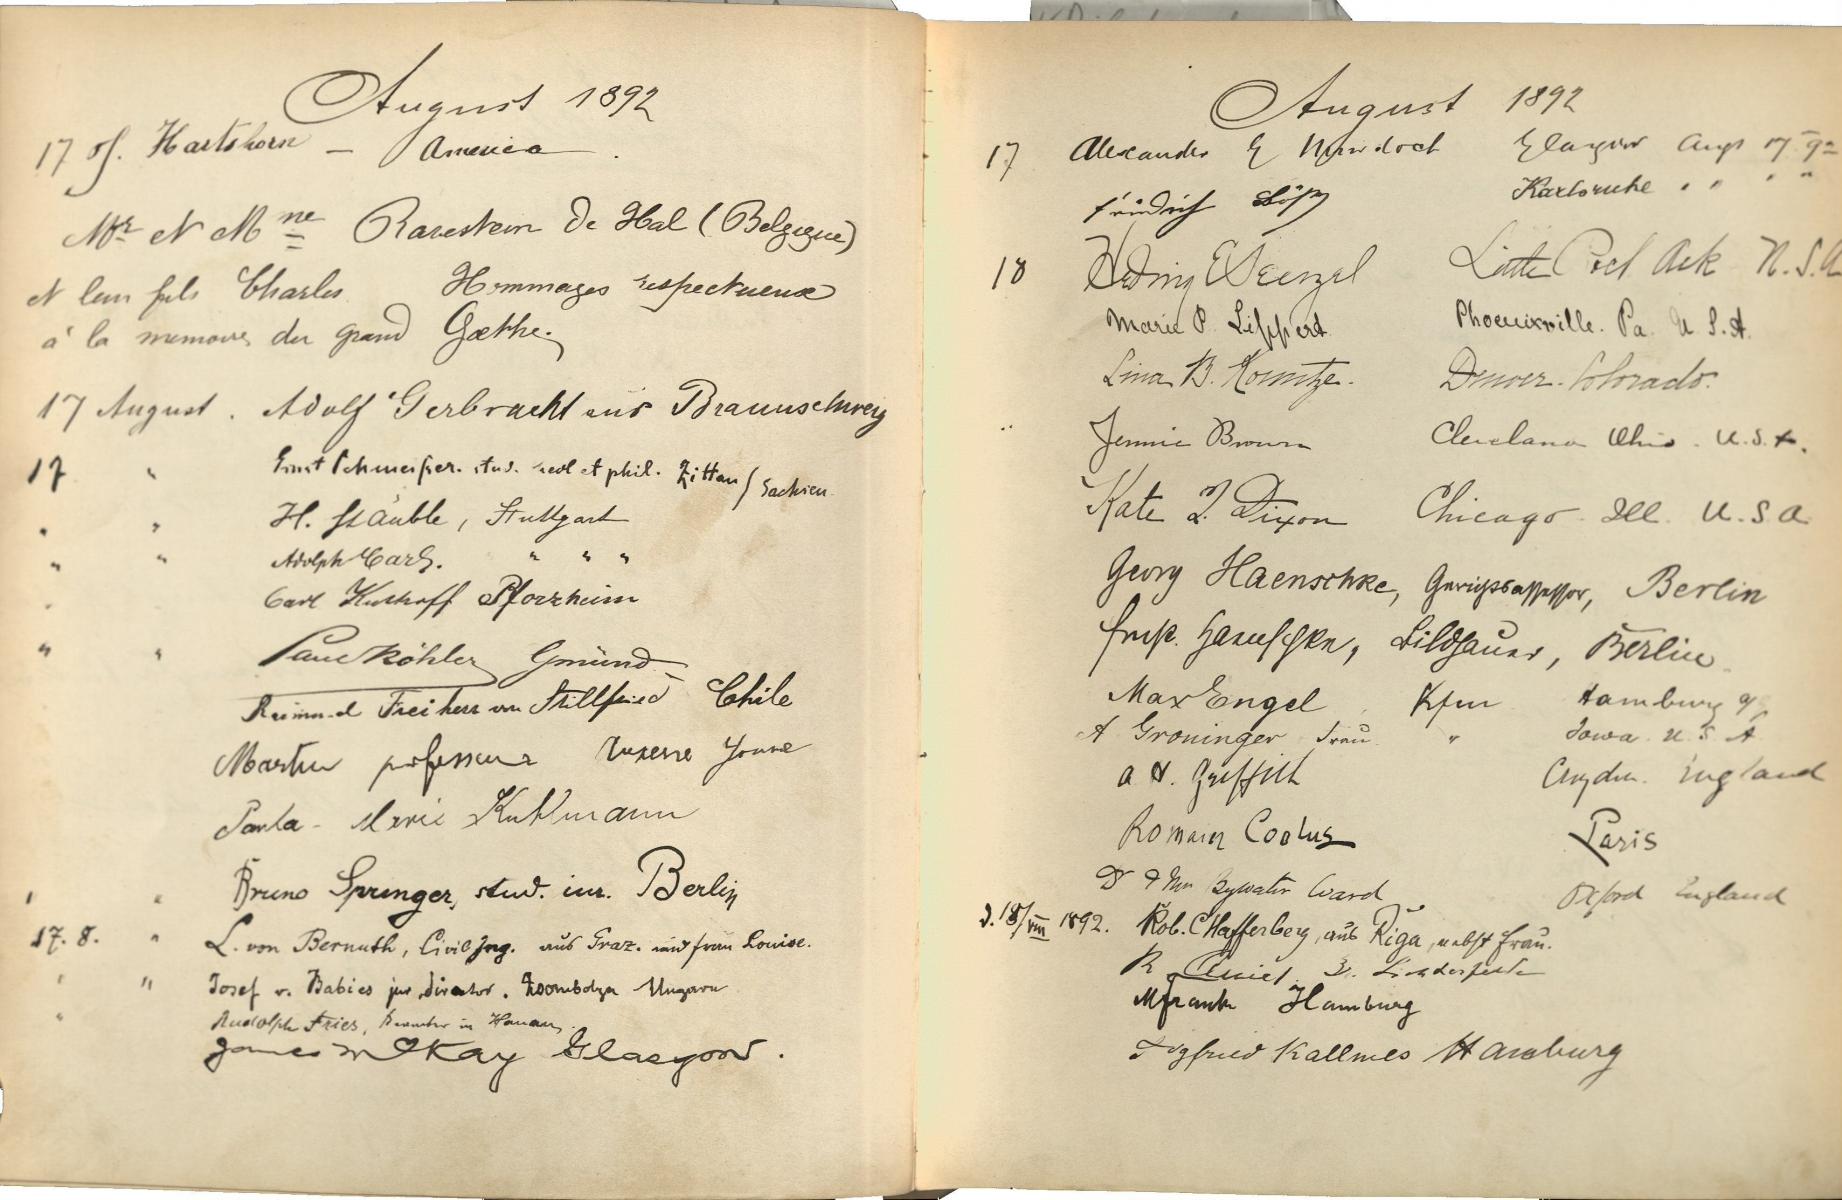 August 1892
17 Hartshorn — America
Mr et Mne Rarestein de Hal (Belgique)
et leur fils Charles Hommages respectueux
à la memoire du grand Gœthe.
17 August. Adolf Gerbracht aus Braunschweig
17 " Ernst stud. et phil. Zittau / Sachsen
" " H. Stäuble, Stuttgart
" " Adolph Carl. " " "
" Carl Pforzheim
" " Paul Köhler Gmünd
Freiherr von Stillfried Chile
Martin professeur Auxerre Yonne
Paula - Marie Kuhlmann
" " Bruno Springer, stud. iur. Berlin
17. 8. " L. von Bernuth, Civil Ing. aus Graz. und frau Louise.
" " Josef v. Babics jur. Director. Zsombolya Ungarn
" Rudolph Fries, in Hanau.
James McKay Glasgow.
August 1892
17 Alexander G Murdoch Glasgow Aug 17 92
Friedrich Karlsruhe " " " "
18 Hedwig Little Rock Ark U.S.A
Marie P. Lippert Phoenixville. Pa. U.S.A.
Lina B. Kountze. Denver. Colorado.
" Jennie Brown Cleveland Ohio. U.S.A.
Kate Dixon Chicago Ill. U.S.A.
Georg Haenschke, Gerichtsassessor, Berlin
Haenschke, Bildhauer, Berlin
Max Engel Kfm Hamburg
A Groninger Frau " Iowa U.S.A
A. H. Griffith Croydon. England
Romain Coolus Paris
Dr & Mrs Bywater Ward Oxford England
d. 18/VIII 1892. Rob. C. Hafferberg, aus Riga, nebst Frau.
R
M Frank Hamburg
Siegfried Kallmes Hamburg